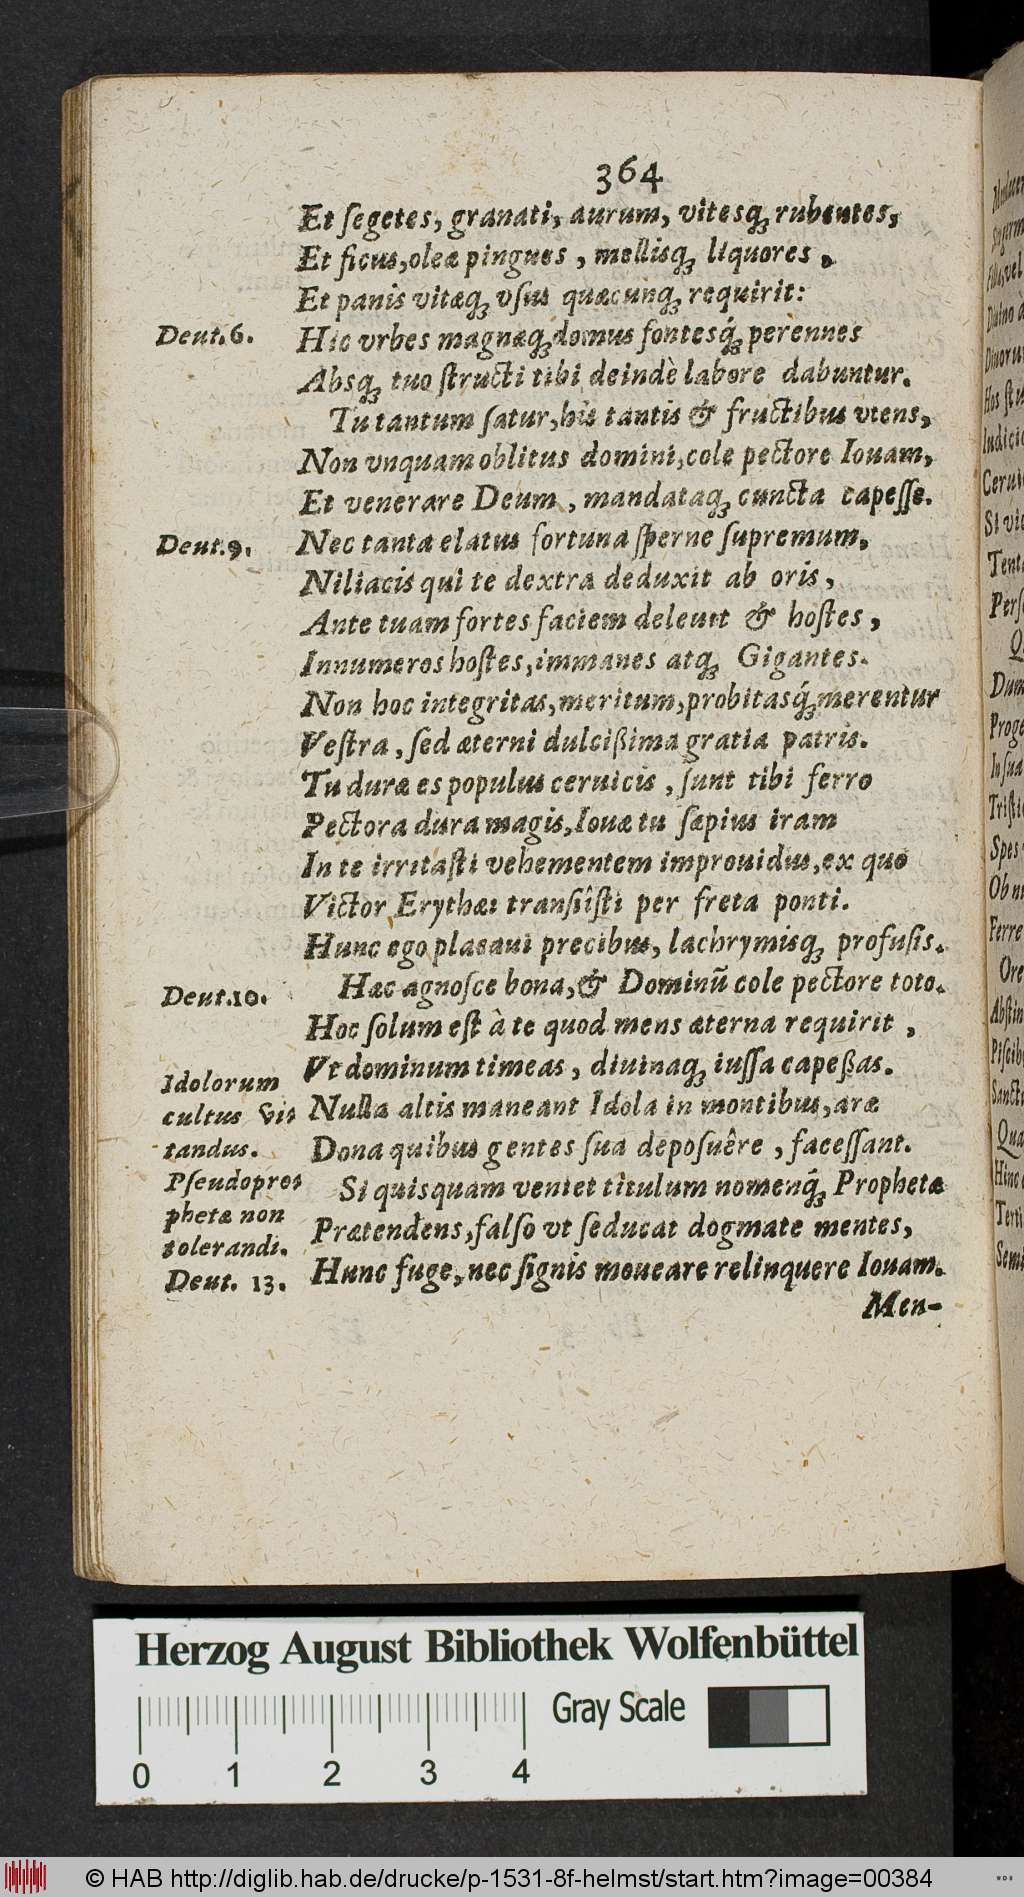 364
Et ſegetes, granati, aurum, vitesq́ue rubentes,
Et ficus, oleæ pingues, mellisq; liquores,
Et panis vitæq; vſus quæcunq; requirit:
Deut.6.
Hic vrbes magnæq; domus fontesq́; perennes
Absq; tuo ſtructi tibi deindè labore dabuntur.
Tu tantum ſatur, his tantis & fructibus vtens,
Non vnquam oblitus domini, cole pectore Iouam,
Et venerare Deum, mandataq; cuncta capeſſe.
Deut.9.
Nec tanta elatus fortuna ſperne ſupremum,
Niliacis qui te dextra deduxit ab oris,
Ante tuam fortes faciem deleuit & hoſtes,
Innumeros hoſtes, immanes atq; Gigantes.
Non hoc integritas, meritum, probitasq́; merentur
Veſtra, ſed æterni dulcißima gratia patris.
Tu duræ es populus ceruicis, ſunt tibi ferro
Pectora dura magis, Iouæ tu ſæpius iram
In te irritaſti vehementem improuidus, ex quo
Victor Erythæi tranſiîſti per freta ponti.
Hunc ego placaui precibus, lachrymisq; profuſis.
Deut.10.
Hæc agnoſce bona, & Dominū cole pectore toto.
Hoc ſolum eſt à te quod mens æterna requirit,
Vt dominum timeas, diuinaq; iuſſa capeßas.
Idolorum
cultus vi-
tandus.
Nulla altis maneant Idola in montibus, aræ
Dona quibus gentes ſua depoſuêre, faceſſant.
Pſeudopro-
phetæ non
tolerandi.
Deut. 13.
Si quisquam veniet titulum nomenq́; Prophetæ
Prætendens, falſo vt ſeducat dogmate mentes,
Hunc fuge, nec ſignis moueare relinquere Iouam.
Men-
Herzog August Bibliothek Wolfenbüttel
Gray Scale
0 1 2 3 4
© HAB http://diglib.hab.de/drucke/p-1531-8f-helmst/start.htm?image=00384